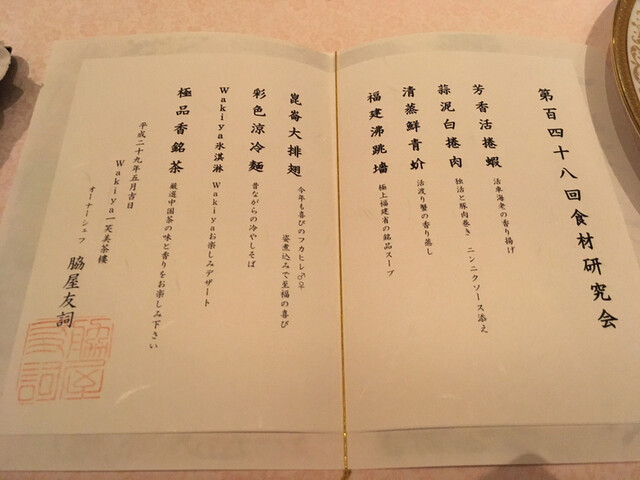 第百四十八回食材研究会
芳香活捲蝦
活車海老の香り揚げ
蒜泥白捲肉
独活と豚肉巻き ニンニクソース添え
清蒸鮮青蚧
活渡り蟹の香り蒸し
福建沸跳墻
極上福建省の銘品スープ
崑崙大排翅
今年も喜びのフカヒレ♂♀
姿煮込みで至福の喜び
彩色涼冷麺
昔ながらの冷やしそば
Wakiya氷淇淋
Wakiyaお楽しみデザート
極品香銘茶
厳選中国茶の味と香りをお楽しみ下さい
平成二十九年五月吉日
Wakiya一笑美茶樓
オーナーシェフ 脇屋友詞
脇屋友詞